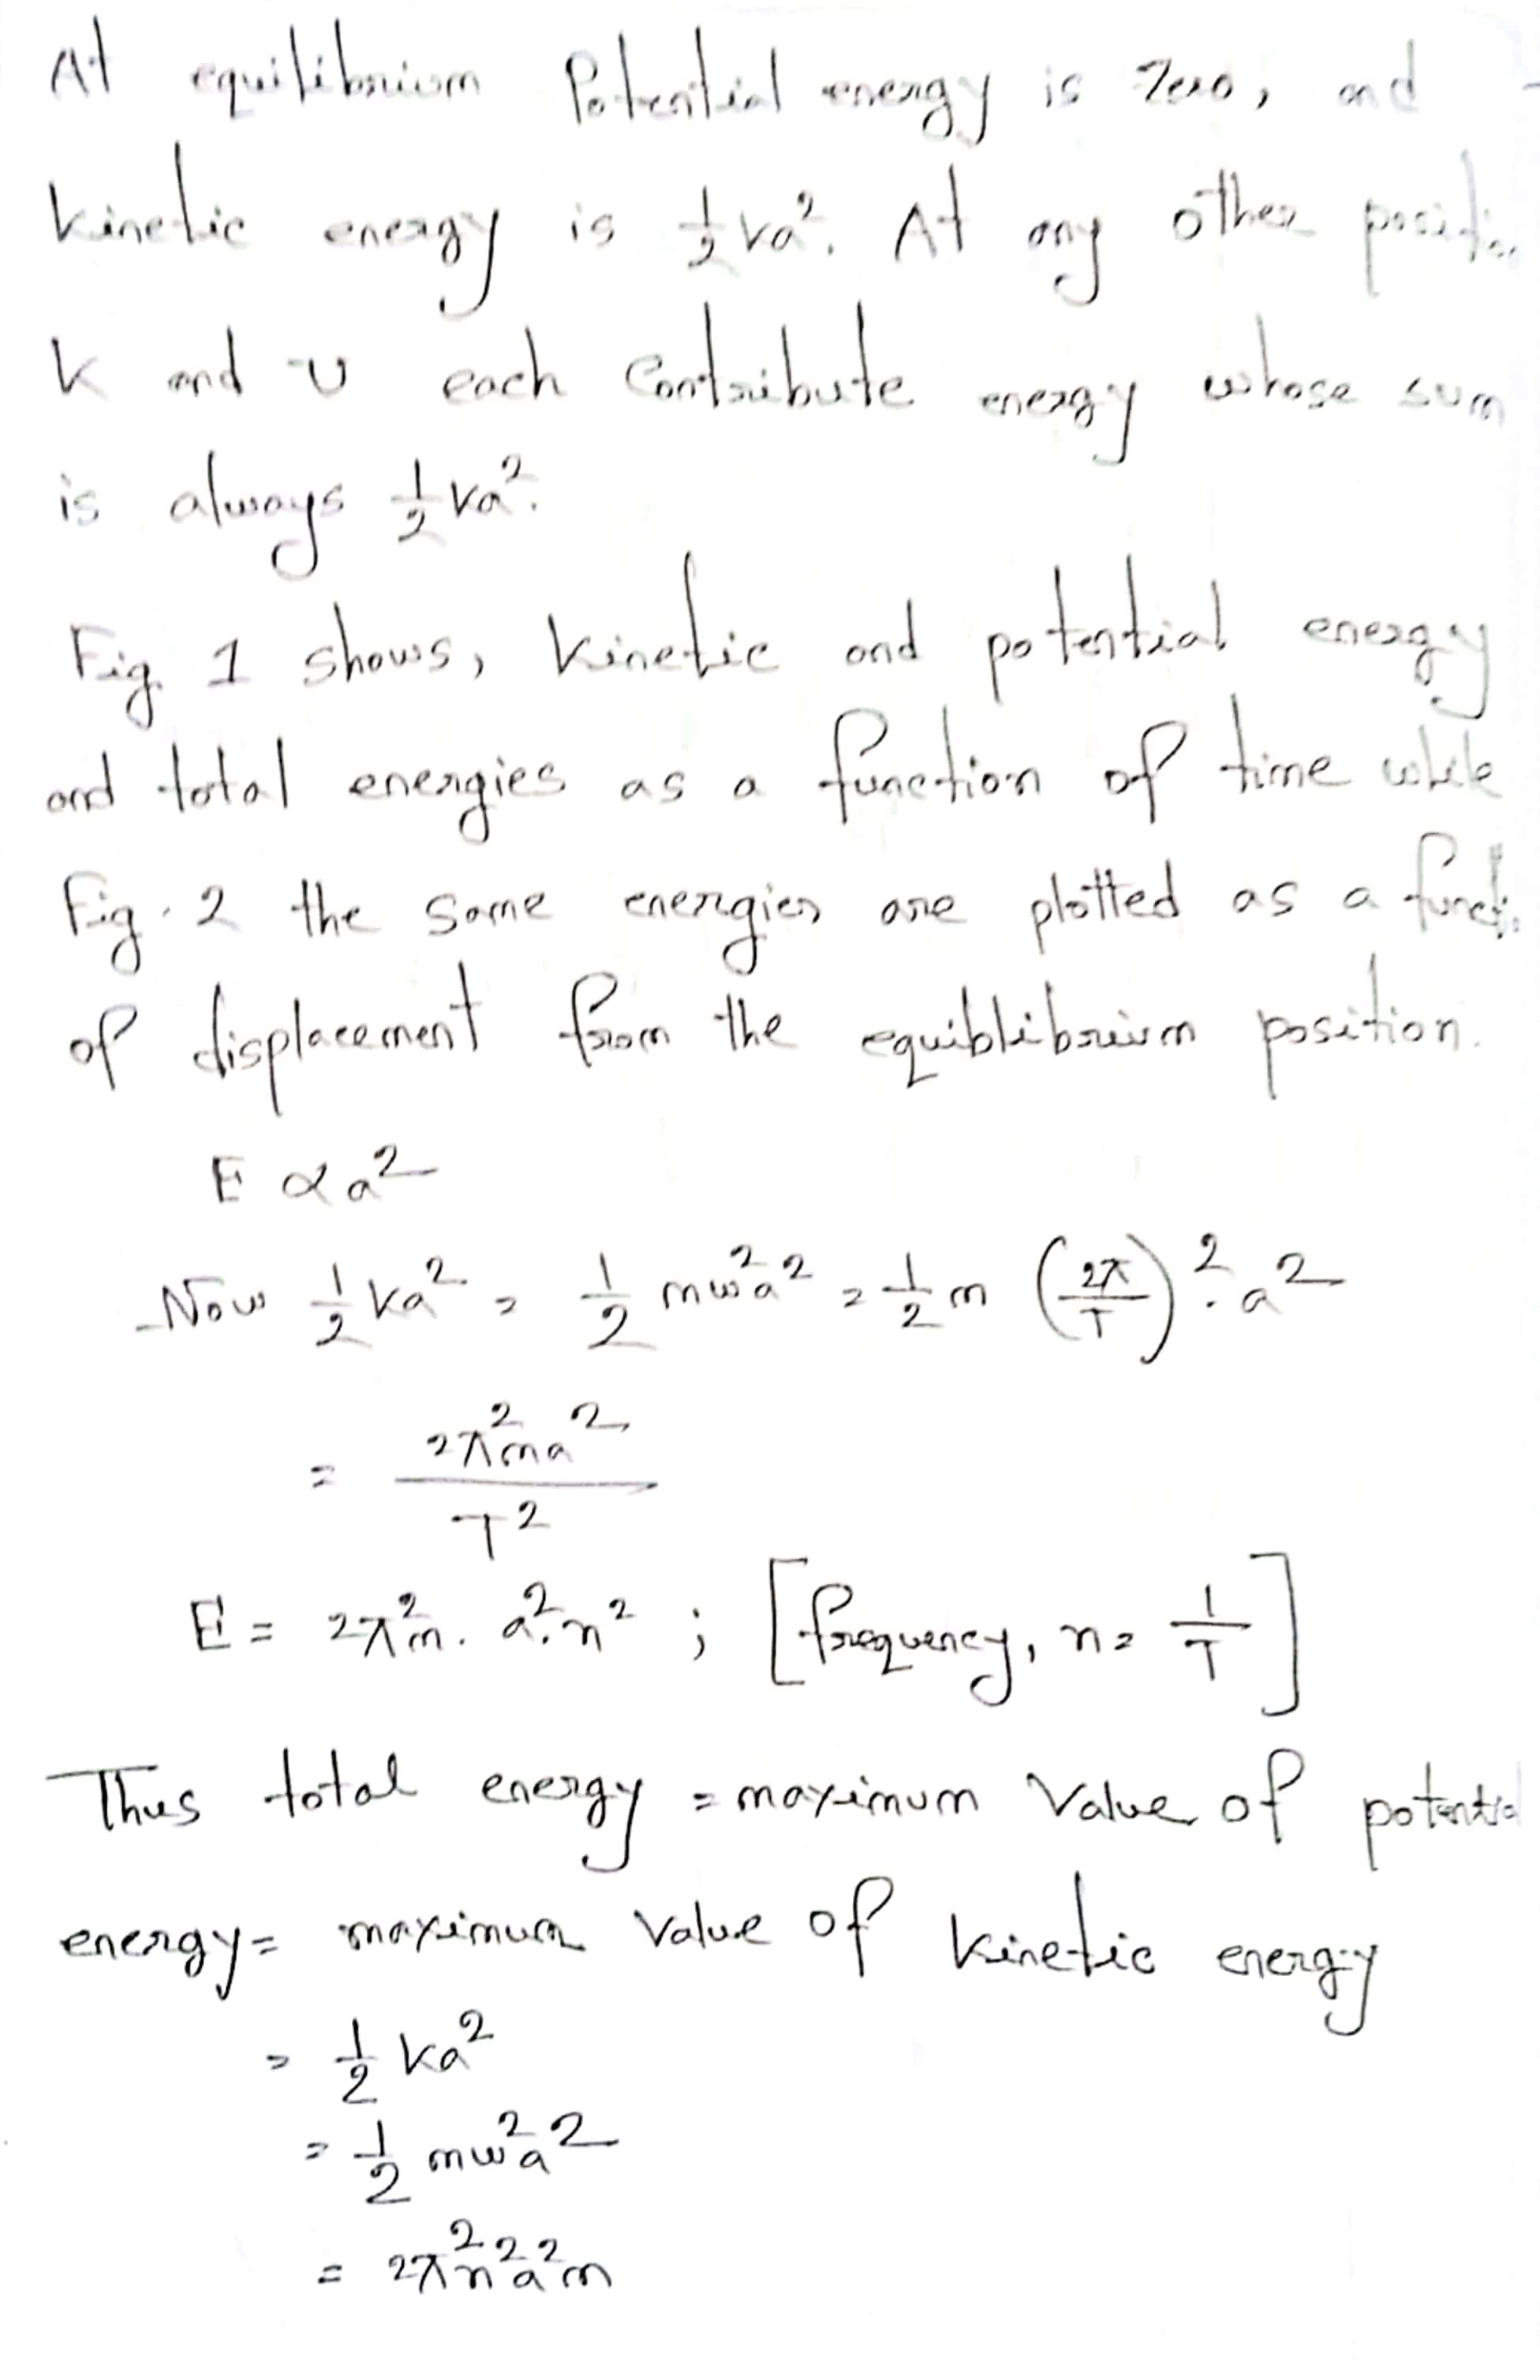 At equilibrium Potential energy is zero, and
kinetic energy is 1/2 ka². At any other positio
K and U each contribute energy whose sum
is always 1/2 ka².
Fig. 1 shows, kinetic and potential energy
and total energies as a function of time while
Fig. 2 the same energies are plotted as a funct
of displacement from the equiblibrium position.
E ∝ a²
Now 1/2 ka² = 1/2 mω²a² = 1/2 m (2π/T)². a²
= 2π²ma²/T²
E = 2π²m. a².n² ; [frequency, n = 1/T]
Thus total energy = maximum value of potentia
energy = maximum value of kinetic energy
= 1/2 ka²
= 1/2 mω²a²
= 2π²n²a²m